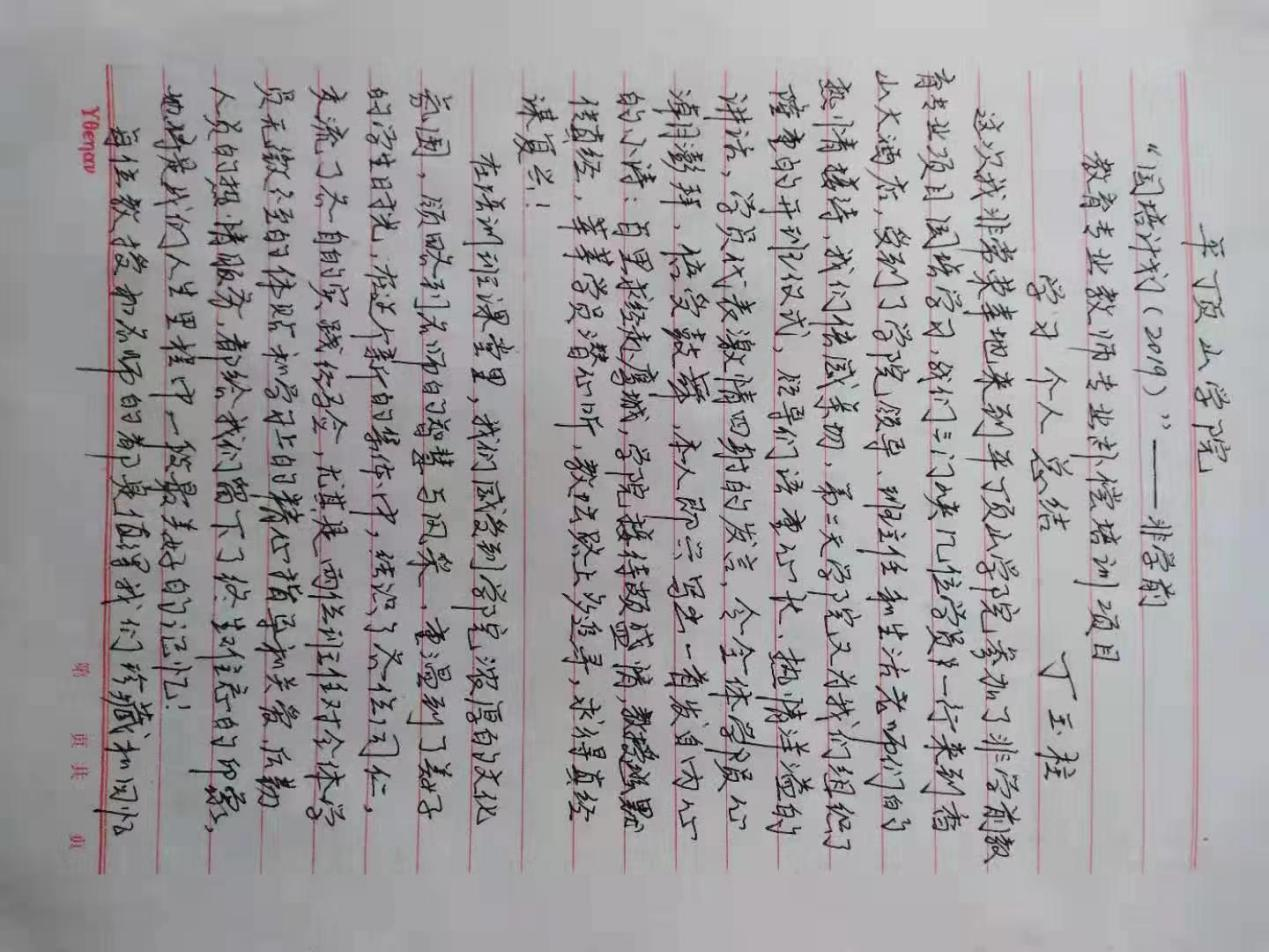 平顶山学院
“国培计划(2019)”——非学前
教育专业教师专业补偿培训项目
学习个人总结
丁玉程
这次我非常荣幸地来到平顶山学院参加了非学前教
育专业项目国培学习,我们三门峡几位学员一行来到香
山大酒店,受到了学院领导、班主任和生活老师们的
热情接待,我们倍感亲切,第二天学院又为我们组织了
隆重的开班仪式,领导们语重心长、热情洋溢的
讲话,学员代表激情四射的发言,令全体学员心
潮澎拜,倍受鼓舞,本人即兴写出一首发自内心
的小诗:百里求经赴鹰城,学院接待颇盛情,教授
传真经,莘莘学员潜心听,教坛路上终追寻,求得真经
谋复兴!
在培训班课堂里,我们感受到学院浓厚的文化
氛围,领略到名师的智慧与风采,重温到了美好
的学生时光,在这个新的集体中,结识了各位同仁,
交流了各自的实践经验,尤其是两位班主任对全体学
员无微不至的体贴和学习上的精心指导和关爱后勤
人员的热情服务,都给我们留下了终生难忘的印象,
她将是我们人生里程中一段最美好的记忆!
每位教授和名师的都是值得我们珍藏和回忆
Yθenχον
第 页 共 页